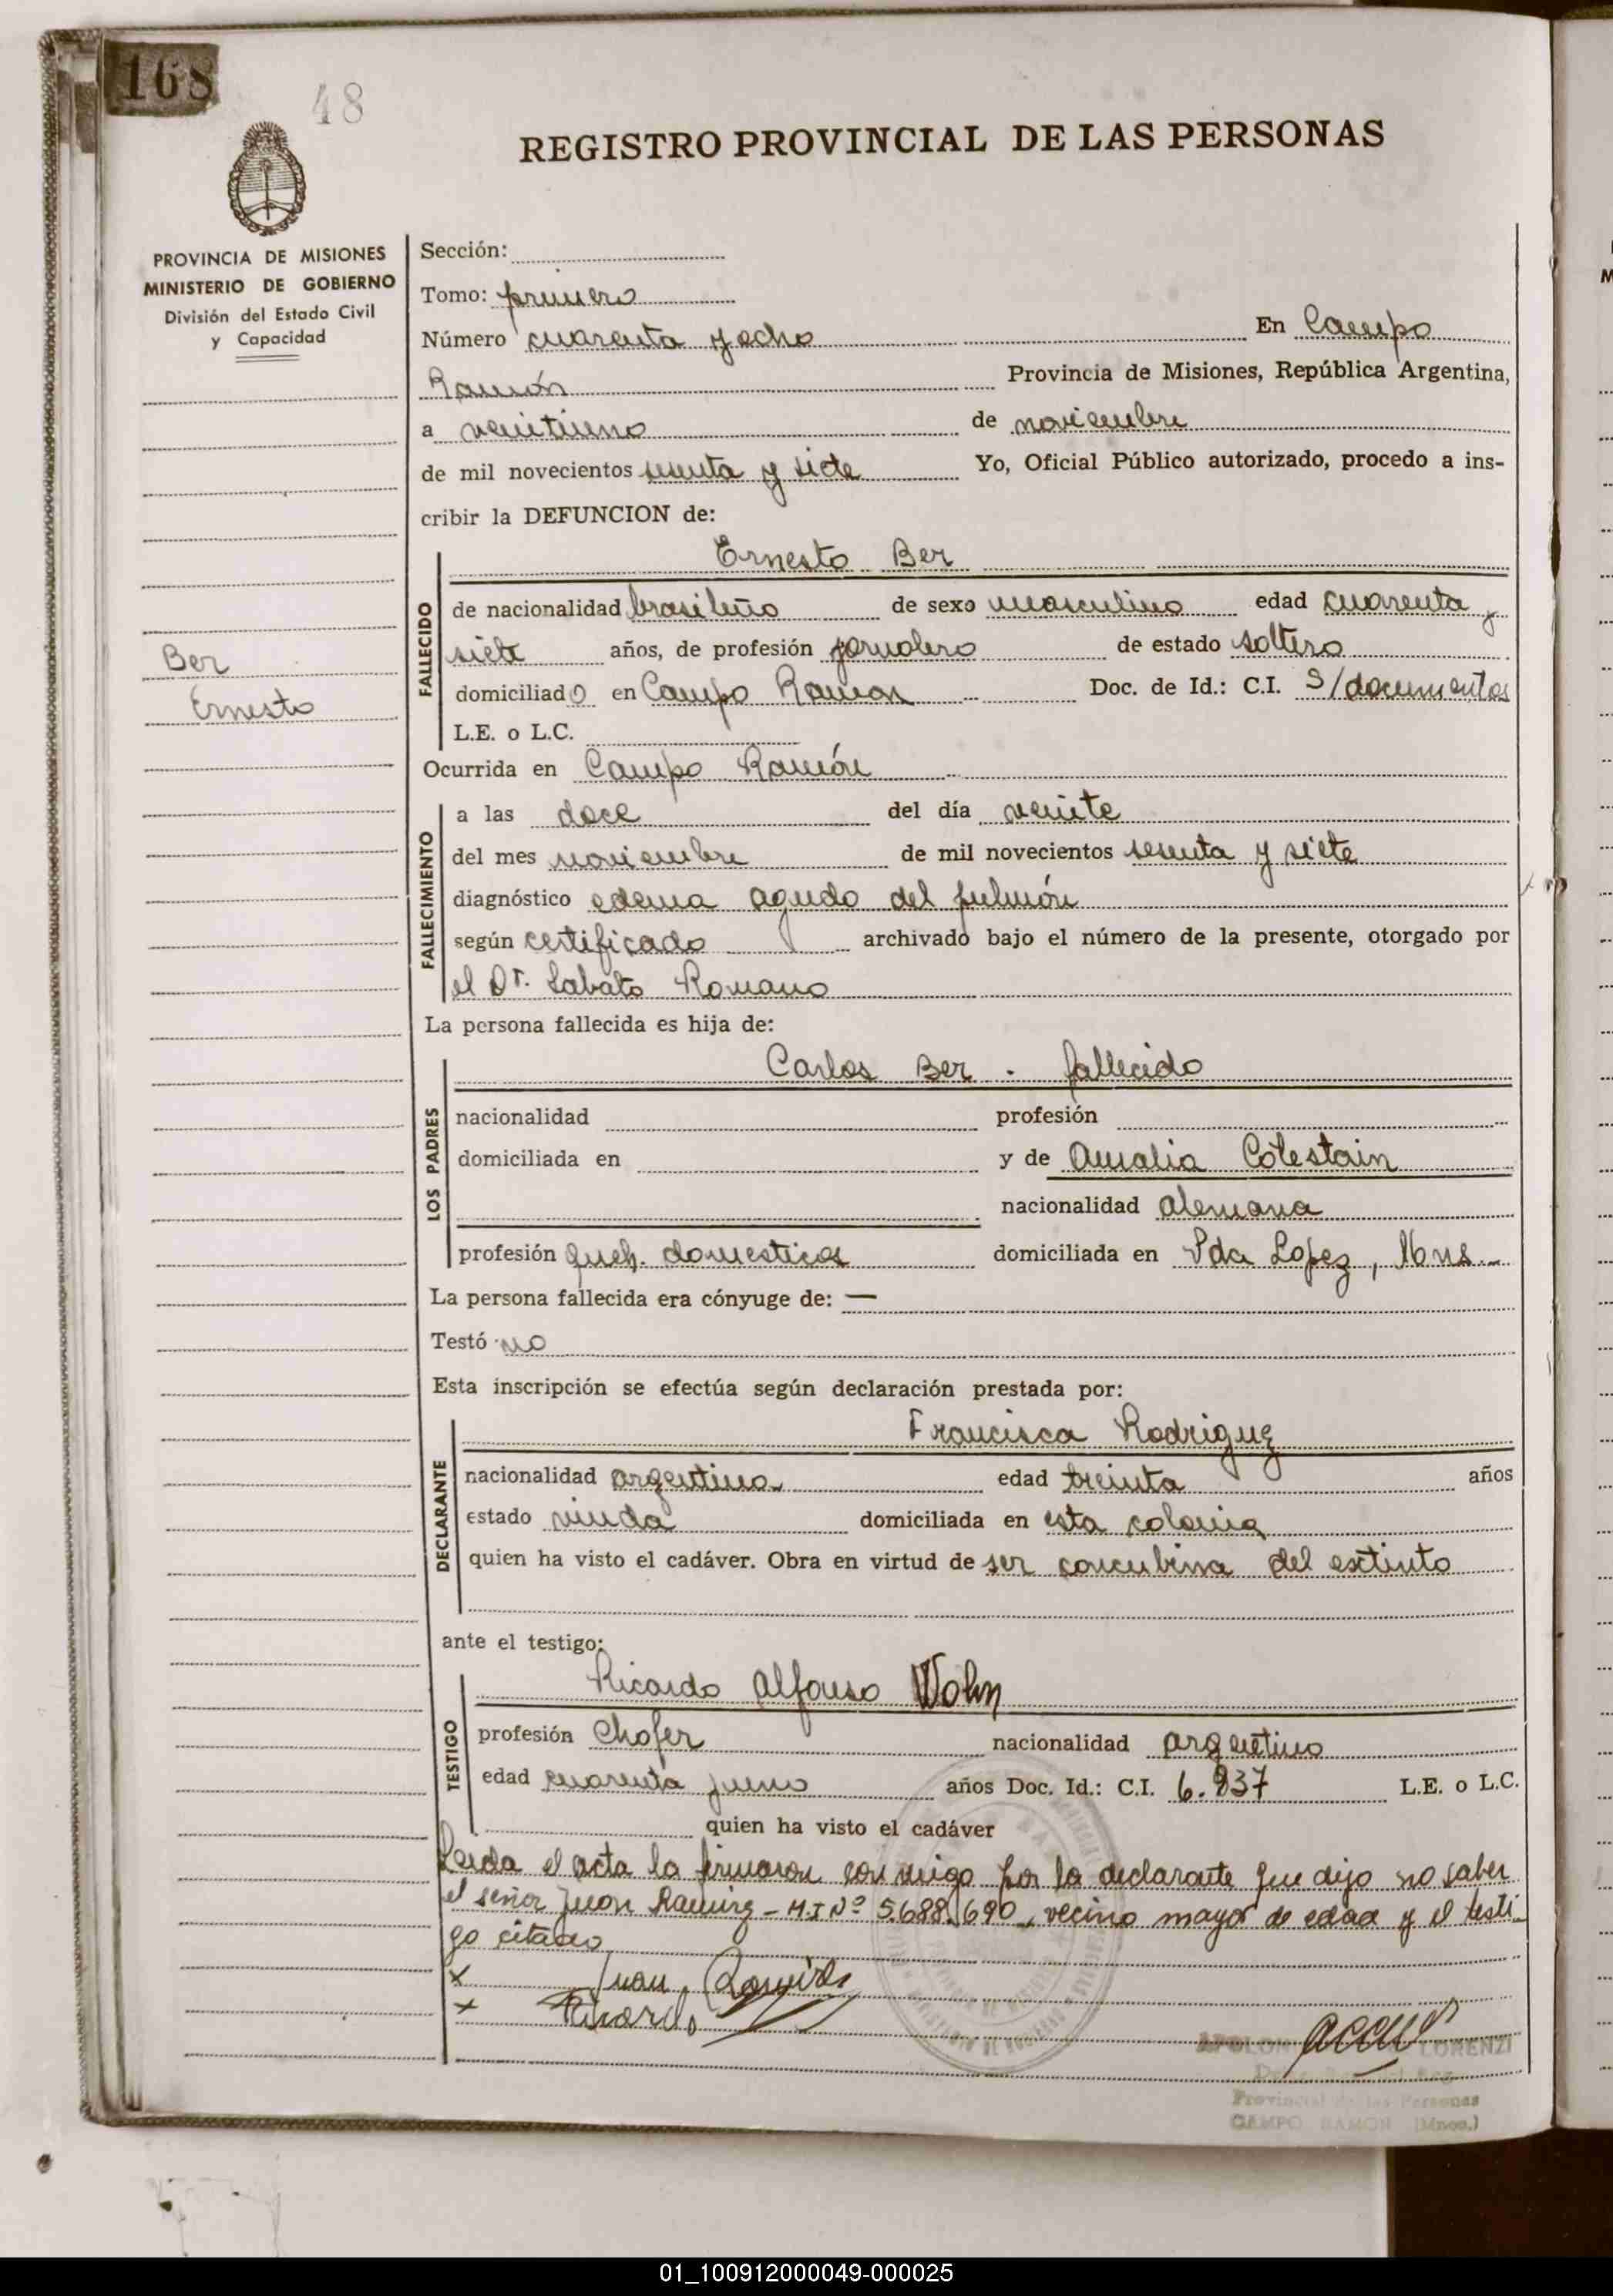 168
48
REGISTRO PROVINCIAL DE LAS PERSONAS
PROVINCIA DE MISIONES
MINISTERIO DE GOBIERNO
División del Estado Civil
y Capacidad
Ber
Ernesto
Sección:
Tomo: primero
Número cuarenta y ocho En Campo
Ramón Provincia de Misiones, República Argentina,
a veintiuno de noviembre
de mil novecientos sesenta y siete Yo, Oficial Público autorizado, procedo a ins-
cribir la DEFUNCION de:
Ernesto Ber
FALLECIDO
de nacionalidad brasileño de sexo masculino edad cuarenta y
siete años, de profesión jornalero de estado soltero
domiciliado en Campo Ramon Doc. de Id.: C.I. S/documentos
L.E. o L.C.
Ocurrida en Campo Ramón
FALLECIMIENTO
a las doce del día veinte
del mes noviembre de mil novecientos sesenta y siete
diagnóstico edema agudo del pulmón
según certificado archivado bajo el número de la presente, otorgado por
el Dr. Sabato Romano
La persona fallecida es hija de:
Carlos Ber - fallecido
LOS PADRES
nacionalidad profesión
domiciliada en y de Amalia Cotestain
nacionalidad alemana
profesión queh. domesticos domiciliada en Pda Lopez, Mns.
La persona fallecida era cónyuge de: —
Testó no
Esta inscripción se efectúa según declaración prestada por:
Francisca Rodriguez
DECLARANTE
nacionalidad argentina edad treinta años
estado viuda domiciliada en esta colonia
quien ha visto el cadáver. Obra en virtud de ser concubina del extinto
ante el testigo:
Ricardo Alfonso Wohn
TESTIGO
profesión Chofer nacionalidad argentino
edad cuarenta y uno años Doc. Id.: C.I. 6.837 L.E. o L.C.
quien ha visto el cadáver
Leida el acta la firmaron conmigo por la declarante que dijo no saber
el señor Juan Ramirez - M.I Nº 5.688.690, vecino mayor de edad y el testi-
go citado
x Juan Ramirez
x Ricardo
LORENZI
Provincial de las Personas
CAMPO RAMON (Mnes.)
01_100912000049-000025